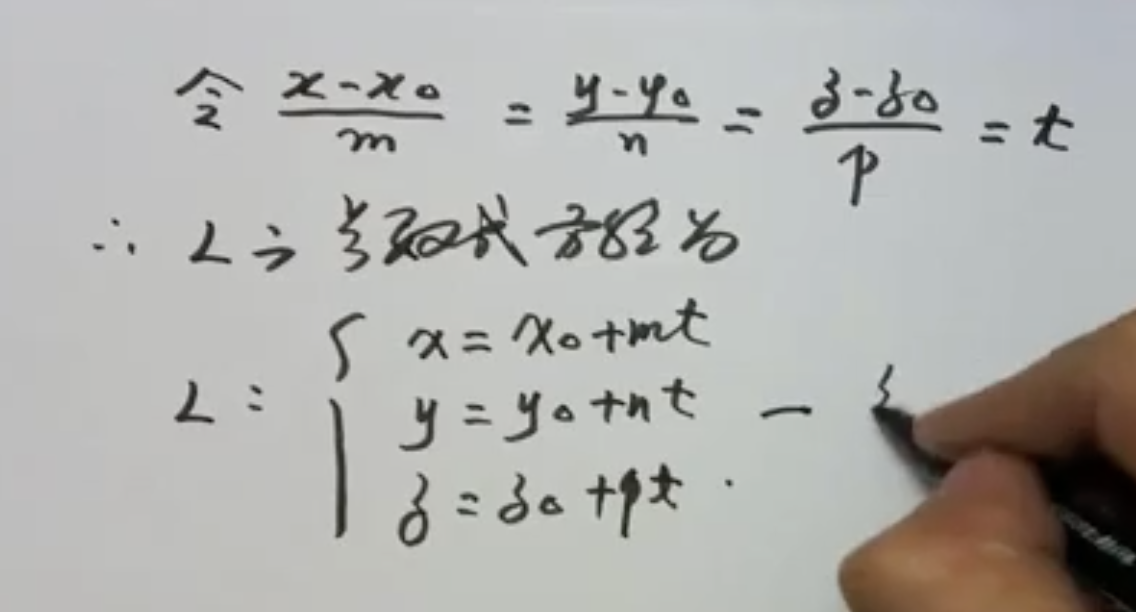 令 (x-x₀)/m = (y-y₀)/n = (z-z₀)/p = t
∴ L 之参数式方程为
x = x₀+mt
L: { y = y₀+nt —
z = z₀+pt.